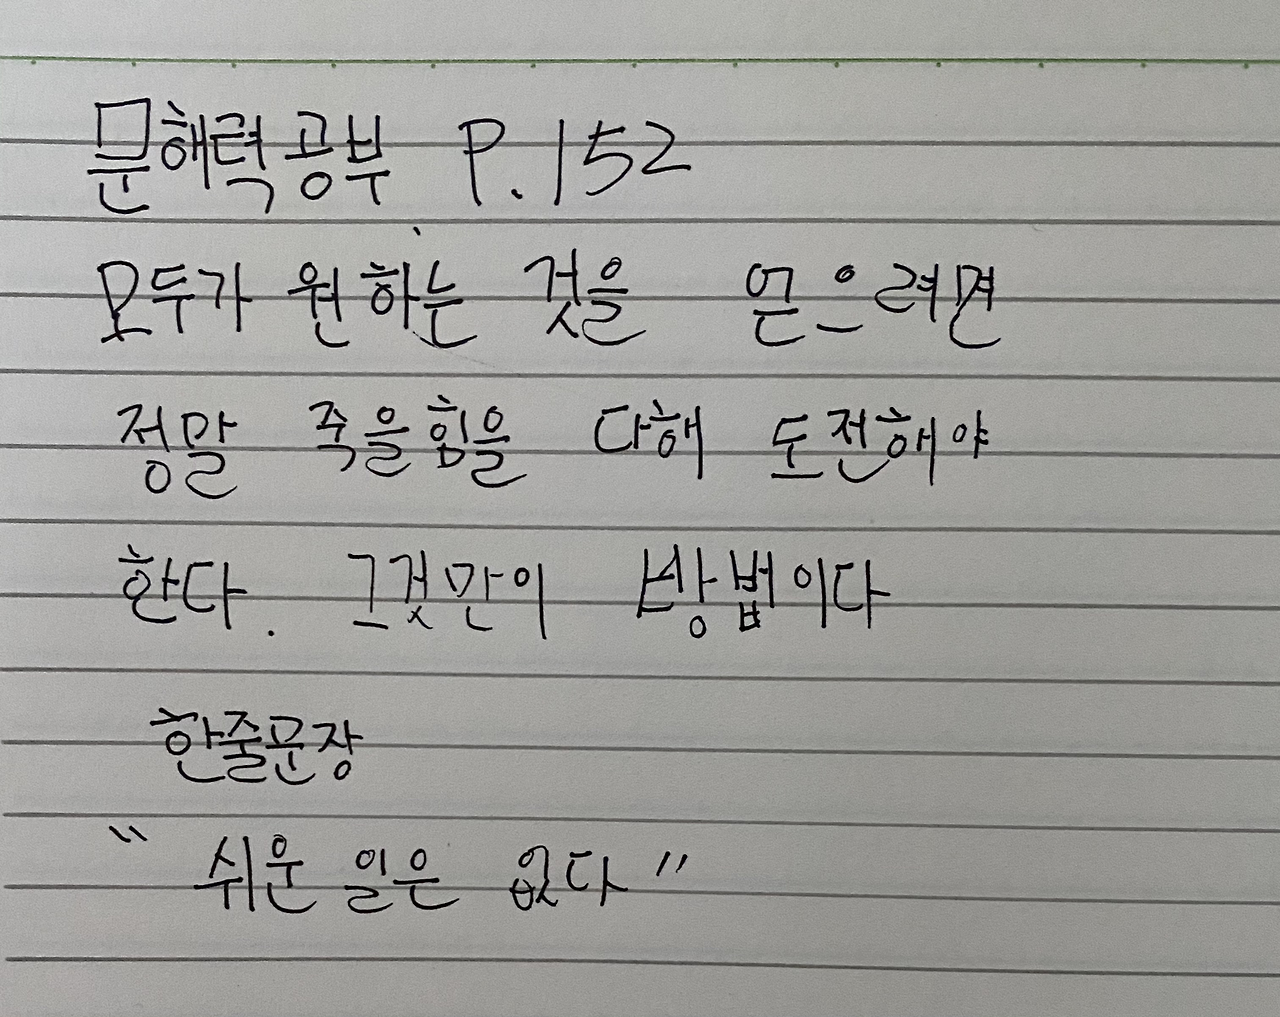 문해력공부 P.152
모두가 원하는 것을 얻으려면
정말 죽을힘을 다해 도전해야
한다. 그것만이 방법이다
한줄문장
“ 쉬운 일은 없다 ”